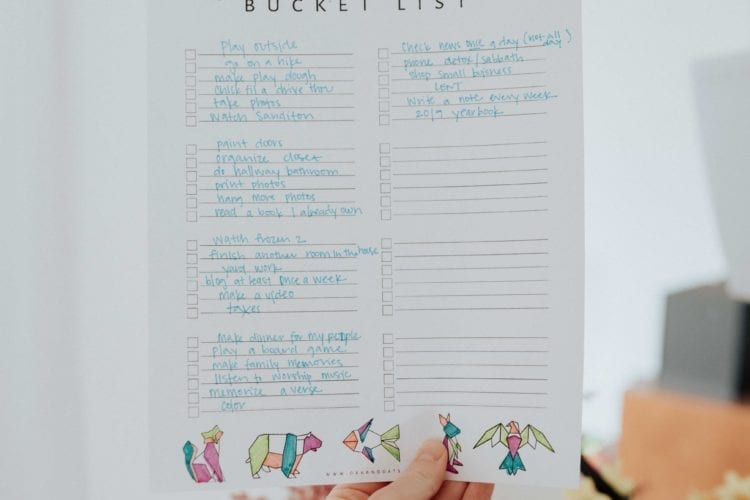 BUCKET LIST
Play outside
go on a hike
make play dough
Chick fil a drive thru
take photos
Watch Sanditon
paint doors
organize closet
do hallway bathroom
print photos
hang more photos
read a book I already own
Watch frozen 2
finish another room in the house
yard work
blog at least once a week
make a video
taxes
Make dinner for my people
play a board game
make family memories
listen to worship music
memorize a verse
color
Check news once a day (not all day)
phone detox/sabbath
shop small business
LENT
Write a note every week
2019 yearbook
WWW.OAKANDOATS